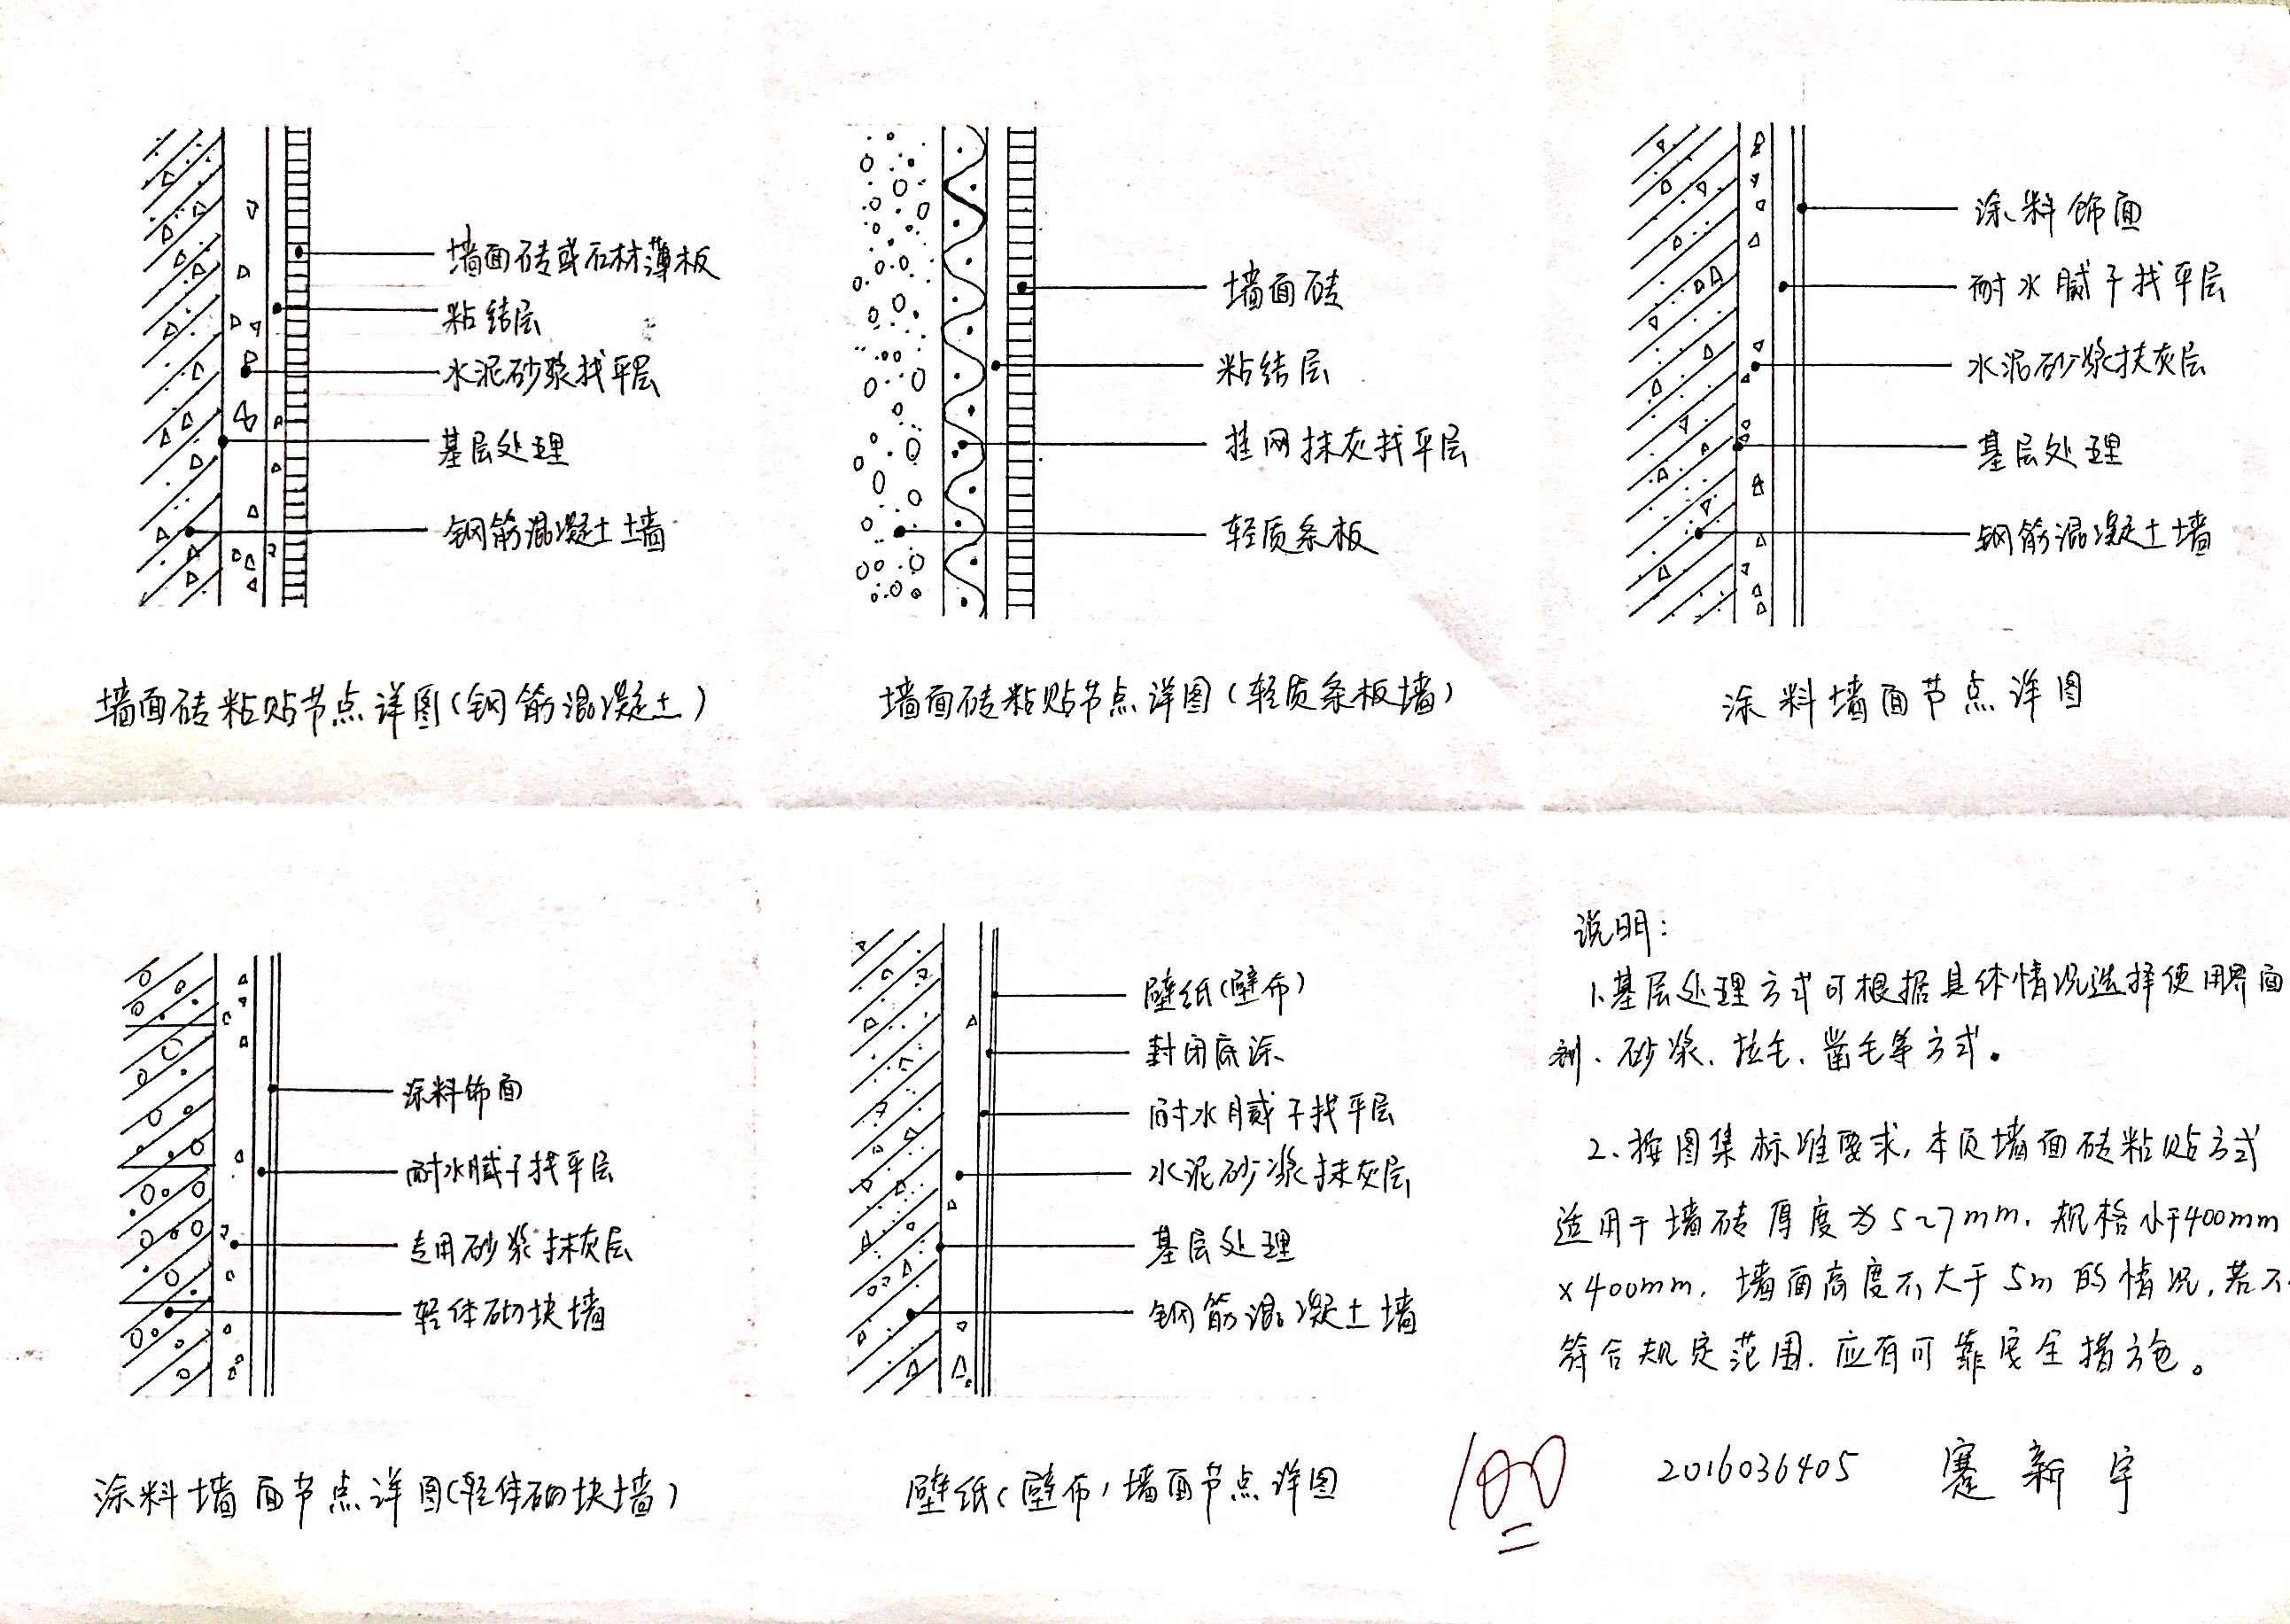 墙面砖或石材薄板
粘结层
水泥砂浆找平层
基层处理
钢筋混凝土墙
墙面砖粘贴节点详图(钢筋混凝土)
墙面砖
粘结层
挂网抹灰找平层
轻质条板
墙面砖粘贴节点详图(轻质条板墙)
涂料饰面
耐水腻子找平层
水泥砂浆抹灰层
基层处理
钢筋混凝土墙
涂料墙面节点详图
涂料饰面
耐水腻子找平层
专用砂浆抹灰层
轻体砌块墙
涂料墙面节点详图(轻体砌块墙)
壁纸(壁布)
封闭底涂
耐水腻子找平层
水泥砂浆抹灰层
基层处理
钢筋混凝土墙
壁纸(壁布)墙面节点详图
说明:
1、基层处理方式可根据具体情况选择使用界面
剂、砂浆、拉毛、凿毛等方式。
2、按图集标准要求,本页墙面砖粘贴方式
适用于墙砖厚度为5~7mm,规格小于400mm
×400mm,墙面高度不大于5m的情况,若不
符合规定范围,应有可靠安全措施。
100
2016036405 蹇新宇